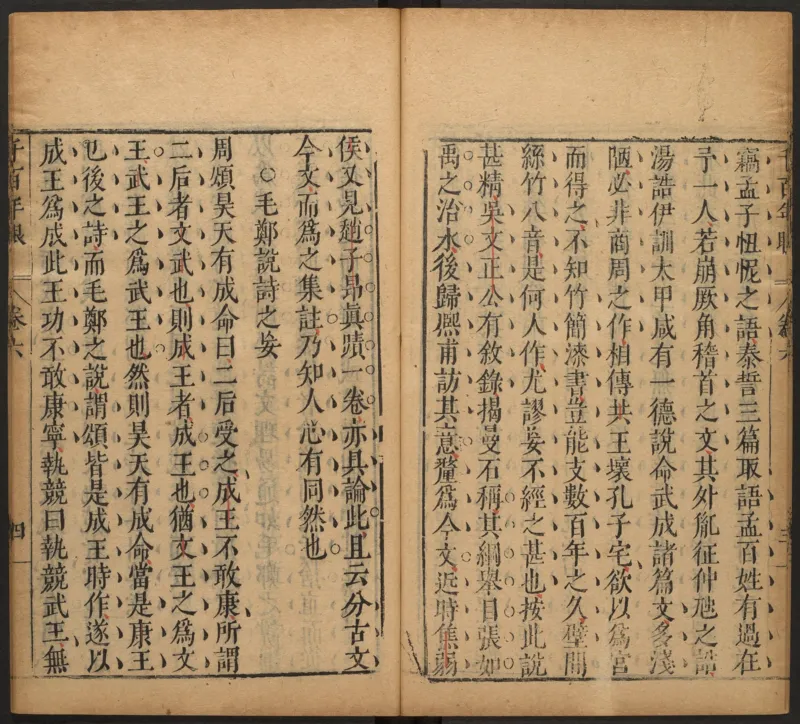 竊孟子忸怩之語泰誓三篇取語孟百姓有過在
予一人若崩厥角稽首之文其外胤征仲虺之誥
湯誥伊訓太甲咸有一德說命武成諸篇文多淺
陋必非商周之作相傳共王壞孔子宅欲以爲宮
而得之不知竹簡漆書豈能支數百年之久壁間
絲竹八音是何人作尤謬妄不經之甚也按此說
甚精吳文正公有敘錄揭曼石稱其綱舉目張如
禹之治水後歸熙甫訪其意釐爲今文近時焦弱
侯又見趙子昂眞蹟一卷亦具論此且云分古文
今文而爲之集註乃知人心有同然也
○毛鄭說詩之妄
周頌昊天有成命曰二后受之成王不敢康所謂
二后者文武也則成王者成王也猶文王之爲文
王武王之爲武王也然則昊天有成命當是康王
已後之詩而毛鄭之說謂頌皆是成王時作遂以
成王爲成此王功不敢康寧執競曰執競武王無
千百年眼 卷六 四